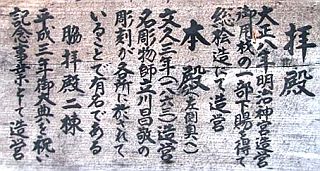 拝殿
大正八年明治神宮造営
御用材の一部下賜を得て
総桧造にて造営
本殿(左側奥へ)
文久三年(一八六三)造営
名彫物師立川昌敬の
彫刻が各所に施されて
いることで有名である
脇拝殿二棟
平成三年御大典を祝い
記念事業として造営